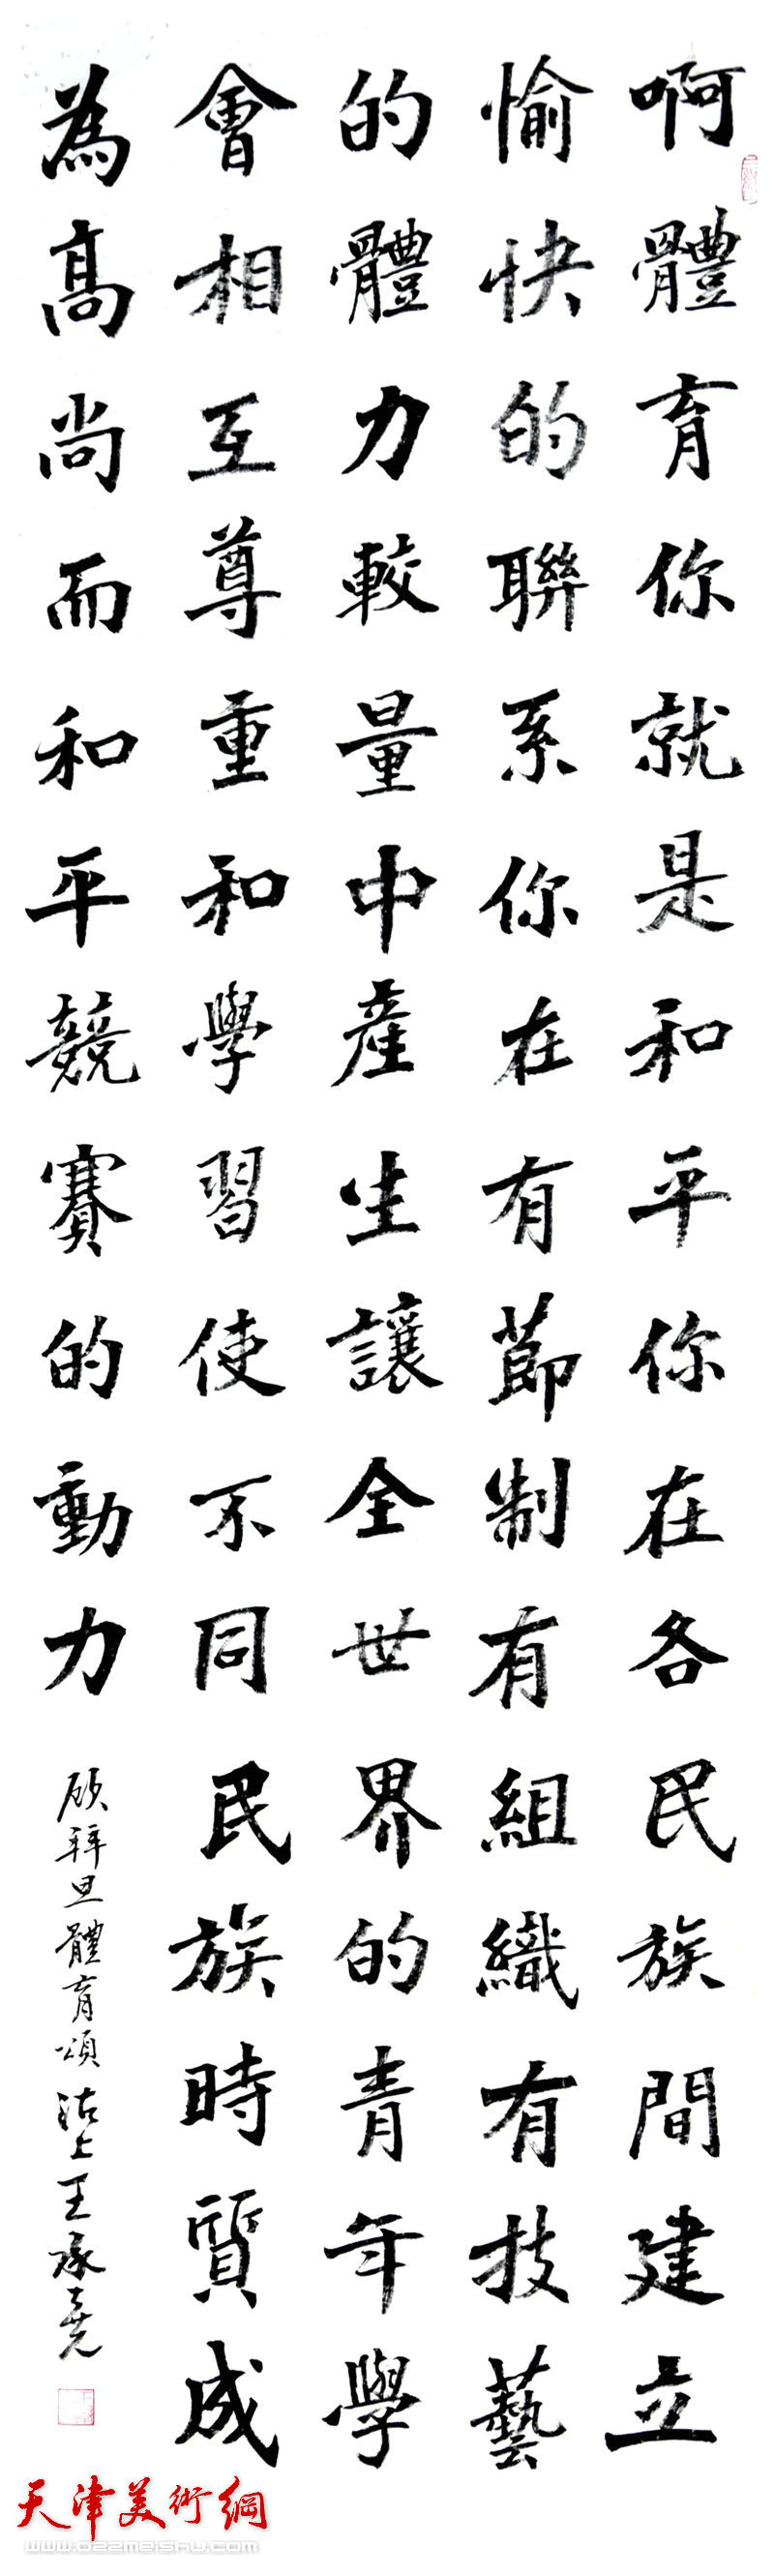 啊體育你就是和平你在各民族間建立
愉快的聯系你在有節制有組織有技藝
的體力較量中產生讓全世界的青年學
會相互尊重和學習使不同民族時質成
為高尚而和平競賽的動力
顾拜旦體育頌沽上王承堯
天津美術網
www.022meishu.com